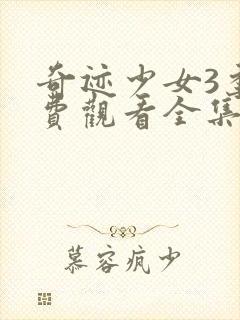 奇迹少女3
費觀看全集
慕容疯少